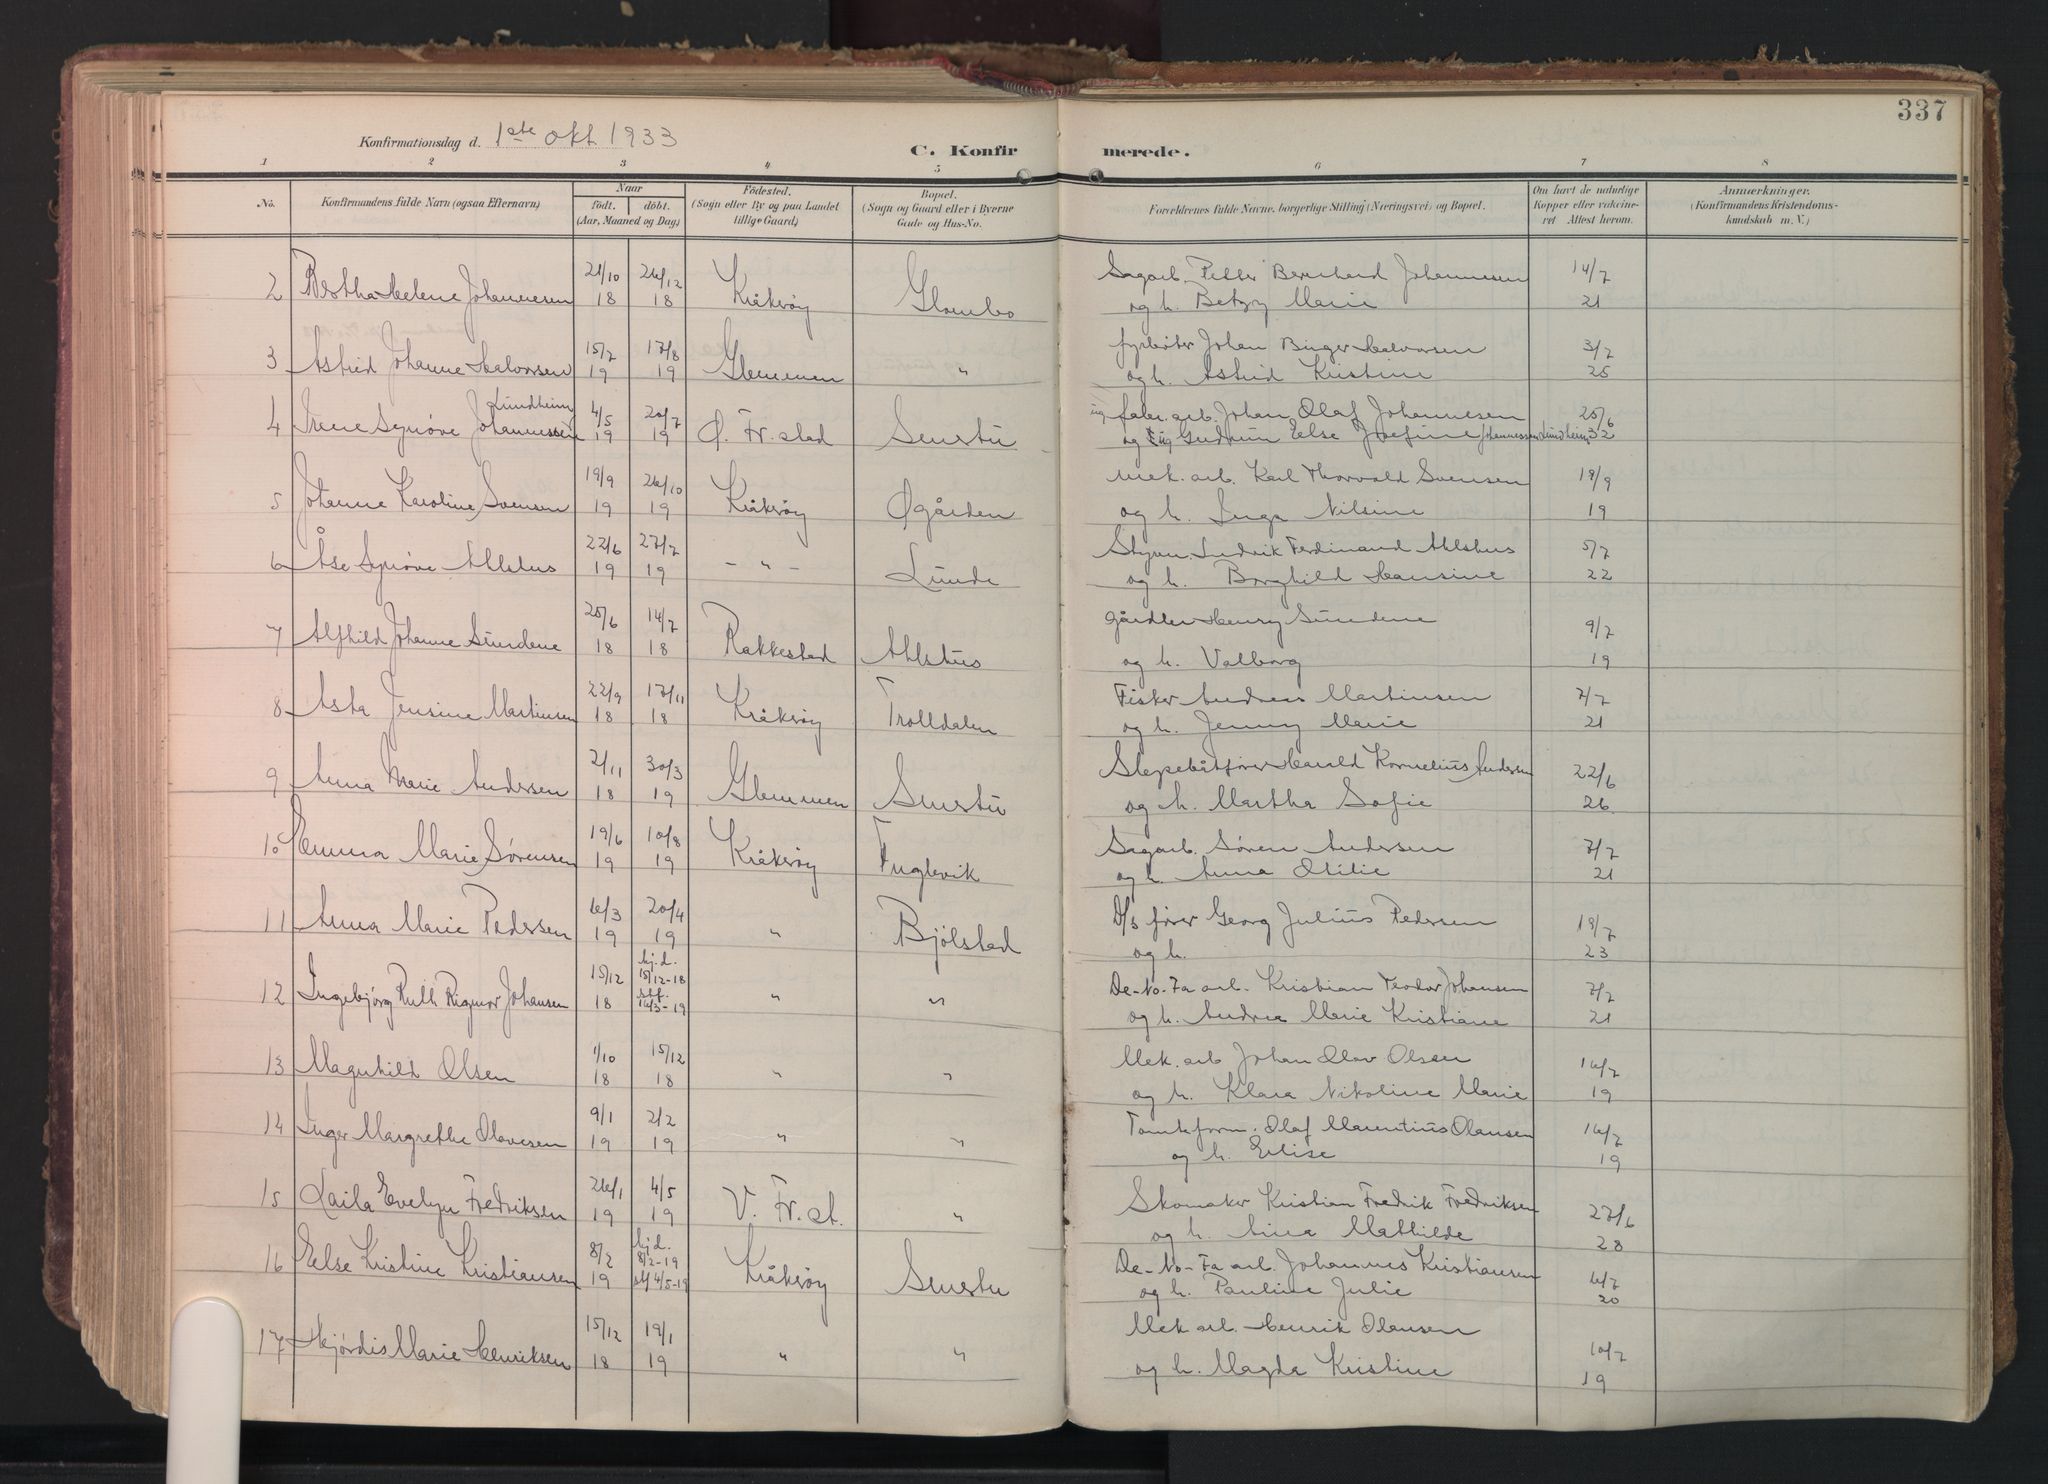 337
Konfirmationsdag d. 1ste okt. 1933
C. Konfirmerede.
1 2 3 4 5 6 7 8
No. Konfirmandens fulde Navn (ogsaa Efternavn) Naar født. døbt. (Aar, Maaned og Dag) Fødested. (Sogn eller By og paa Landet tillige Gaard) Bopæl. (Sogn og Gaard eller i Byerne Gade og Hus-No. Forældrenes fulde Navne, borgerlige Stilling (Næringsvei) og Bopæl. Om havt de naturlige Kopper eller vakcineret. Attest herom. Anmærkninger. (Konfirmandens Kristendomskundskab m. V.)
2 Bertha Helene Johannesen 21/10 18 26/12 18 Kråkrøy Glombo Sagarb. Petter Bernhard Johannesen 14/7
og h. Betzy Marie 21
3 Astrid Johanne Halvorsen 15/7 19 17/8 19 Glemmen " fyrbøter Johan Birger Halvorsen 3/7
og h. Astrid Kristine 25
Lundheim
4 Irene Synøve Johannessen 4/5 19 20/7 19 Ø. Fr.stad Smertu ug fabr. arb. Johan Olaf Johannesen 25/6
og pig Gudrun Else Josefine Johannessen Lundheim 32
5 Johanne Karoline Svensen 19/9 19 26/10 19 Kråkrøy Øgården Mek. arb. Karl Thorvald Svensen 18/9
og h. Inga Nilsine 19
6 Åse Synøve Ahlshus 22/6 19 27/7 19 - " - Lunde Styrm. Ludvik Ferdinand Ahlshus 5/7
og h. Borghild Hansine 22
7 Alfhild Johanne Sundene 25/6 18 14/7 18 Rakkestad Ahlshus Gårdbr Henry Sundene 9/7
og h. Valborg 19
8 Asta Jensine Martinsen 22/9 18 17/11 18 Kråkrøy Trolldalen Fisker Andreas Martinsen 7/7
og h. Jenny Marie 21
9 Anna Marie Andersen 2/11 18 30/3 19 Glemmen Smertu Slepebåtfører Harald Kornelius Andersen 22/6
og h. Martha Sofie 26
10 Emma Marie Sørensen 19/6 19 10/8 19 Kråkrøy Fuglevik Sagarb. Søren Andersen 7/7
og h. Anna Otilie 21
11 Anna Marie Pedersen 6/3 19 20/4 19 " Bjølstad D/S fører Georg Julius Pedersen 18/7
og h. 23
12 Ingebjørg Ruth Rigmor Johansen 15/12 18 hj.d. 15/12-18 stf. 16/3-19 " " De-No-Fa arb. Kristian Teodor Johansen 7/7
og h. Andrea Marie Kristiane 21
13 Magnhild Olsen 1/10 18 15/12 18 " " Mek. arb Johan Olav Olsen 16/7
og h. Klara Nikoline Marie 19
14 Inger Margrethe Olavesen 9/1 19 2/2 19 " " Tomteform. Olaf Marentius Olausen 16/7
og h. Elise 19
15 Laila Evelyn Fredriksen 26/1 19 4/5 19 V. Fr.st. " Skomaker Kristian Fredrik Fredriksen 27/6
og h. Aina Mathilde 28
16 Else Kristine Kristiansen 8/2 19 hj.d. 8/2-19 stf 4/5-19 Kråkrøy Smertu De-No-Fa arb. Johannes Kristiansen 6/7
og h. Pauline Julie 20
17 Hjørdis Marie Henriksen 15/12 18 19/1 19 " " Mek arb. Henrik Olausen 10/7
og h. Magda Kristine 19